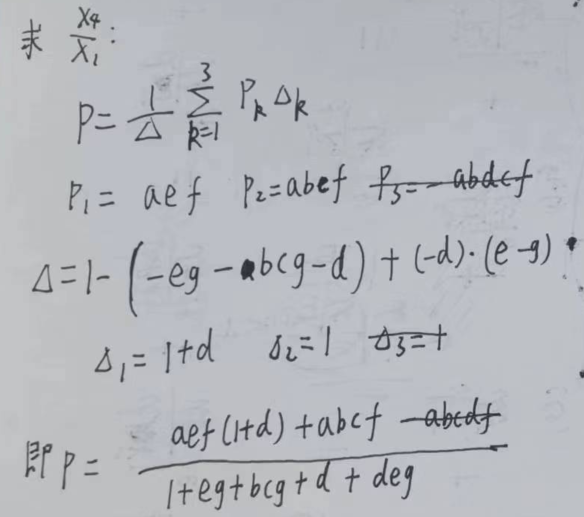 求 X₄/X₁:
P = 1/Δ ∑_{k=1}^{3} P_k Δ_k
P₁ = aef P₂=abcf ~~P₃=-abdcf~~
Δ=1-(-eg-abcg-d)+(-d)·(e-g)
Δ₁=1+d Δ₂=1 ~~Δ₃=1~~
即P= (aef(1+d)+abcf ~~-abcdf~~)/(1+eg+bcg+d+deg)